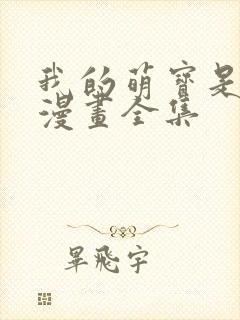 我的萌寶是
漫畫全集
畢飛宇